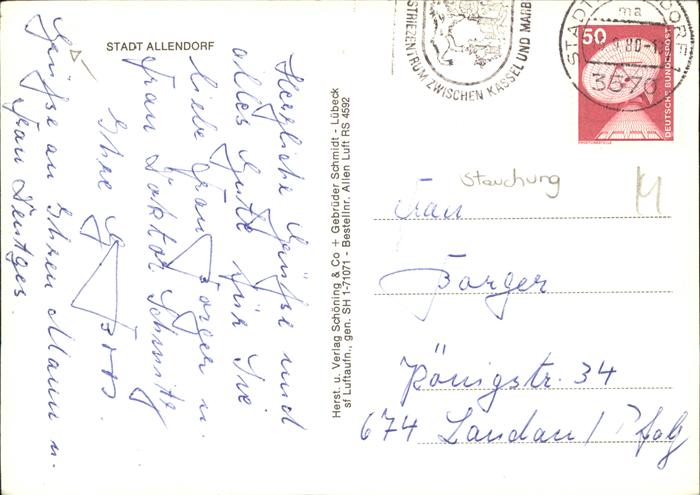 STADT ALLENDORF
Herzliche Grüsse und
alles Gute für Sie
liebe Frau Borger u.
Frau Doktor Schmitt
Ihre
Grüsse an Ihren Mann u.
Frau
Herst. u. Verlag Schöning & Co + Gebrüder Schmidt - Lübeck
sf Luftaufn., gen. SH 1-71071 - Bestellnr. Allen Luft RS 4592
STRIEZENTRUM ZWISCHEN KASSEL UND MARB
STADT
DORF 1
80
3570
50
DEUTSCHE BUNDESPOST
Stauchung
Frau
Borger
Königstr. 34
674 Landau / Pfalz